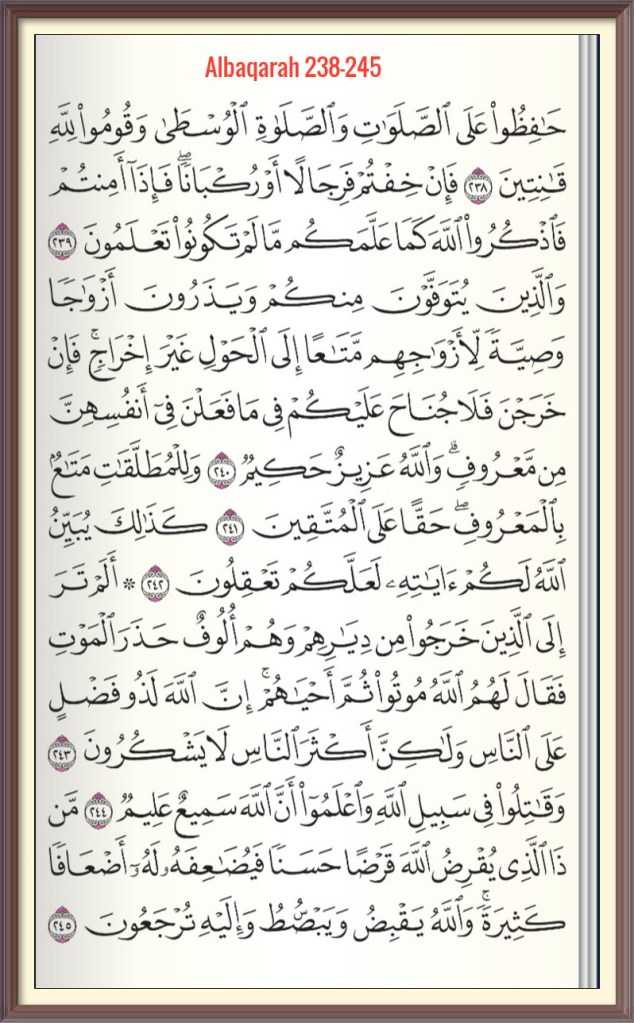 Albaqarah 238-245
حَٰفِظُوا۟ عَلَى ٱلصَّلَوَٰتِ وَٱلصَّلَوٰةِ ٱلْوُسْطَىٰ وَقُومُوا۟ لِلَّهِ
قَٰنِتِينَ ٢٣٨ فَإِنْ خِفْتُمْ فَرِجَالًا أَوْ رُكْبَانًا ۖ فَإِذَآ أَمِنتُمْ
فَٱذْكُرُوا۟ ٱللَّهَ كَمَا عَلَّمَكُم مَّا لَمْ تَكُونُوا۟ تَعْلَمُونَ ٢٣٩
وَٱلَّذِينَ يُتَوَفَّوْنَ مِنكُمْ وَيَذَرُونَ أَزْوَٰجًا
وَصِيَّةً لِّأَزْوَٰجِهِم مَّتَٰعًا إِلَى ٱلْحَوْلِ غَيْرَ إِخْرَاجٍ ۚ فَإِنْ
خَرَجْنَ فَلَا جُنَاحَ عَلَيْكُمْ فِى مَا فَعَلْنَ فِىٓ أَنفُسِهِنَّ
مِن مَّعْرُوفٍ ۗ وَٱللَّهُ عَزِيزٌ حَكِيمٌ ٢٤٠ وَلِلْمُطَلَّقَٰتِ مَتَٰعٌۢ
بِٱلْمَعْرُوفِ ۖ حَقًّا عَلَى ٱلْمُتَّقِينَ ٢٤١ كَذَٰلِكَ يُبَيِّنُ
ٱللَّهُ لَكُمْ ءَايَٰتِهِۦ لَعَلَّكُمْ تَعْقِلُونَ ٢٤٢ ۞ أَلَمْ تَرَ
إِلَى ٱلَّذِينَ خَرَجُوا۟ مِن دِيَٰرِهِمْ وَهُمْ أُلُوفٌ حَذَرَ ٱلْمَوْتِ
فَقَالَ لَهُمُ ٱللَّهُ مُوتُوا۟ ثُمَّ أَحْيَٰهُمْ ۚ إِنَّ ٱللَّهَ لَذُو فَضْلٍ
عَلَى ٱلنَّاسِ وَلَٰكِنَّ أَكْثَرَ ٱلنَّاسِ لَا يَشْكُرُونَ ٢٤٣
وَقَٰتِلُوا۟ فِى سَبِيلِ ٱللَّهِ وَٱعْلَمُوٓا۟ أَنَّ ٱللَّهَ سَمِيعٌ عَلِيمٌ ٢٤٤ مَّن
ذَا ٱلَّذِى يُقْرِضُ ٱللَّهَ قَرْضًا حَسَنًا فَيُضَٰعِفَهُۥ لَهُۥٓ أَضْعَافًا
كَثِيرَةً ۚ وَٱللَّهُ يَقْبِضُ وَيَبْصُۜطُ وَإِلَيْهِ تُرْجَعُونَ ٢٤٥